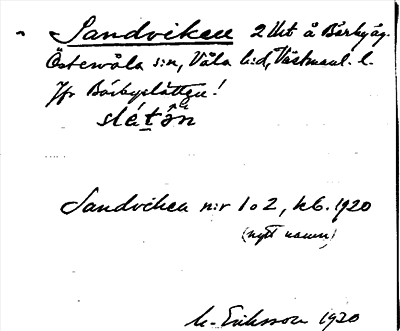 Sandviken 2 Utt å Bärby äg.
Östervåla s:n, Våla h:d, Västmanl. l.
Jfr Bärbyslätten!
slétǫ̂n
Sandviken n:r 1 o 2, kb. 1920
(nytt namn)
M. Eriksson 1920